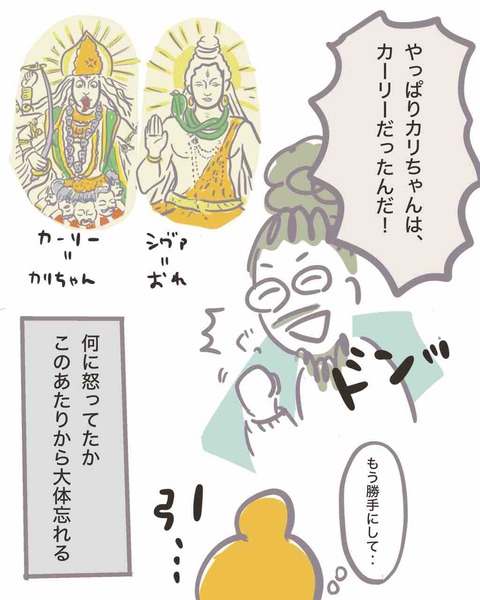 やっぱりカリちゃんは、
カーリーだったんだ！
カーリー
=
カリちゃん
シヴァ
=
おれ
ドンッ
もう勝手にして‥
引…
何に怒ってたか
このあたりから大体忘れる